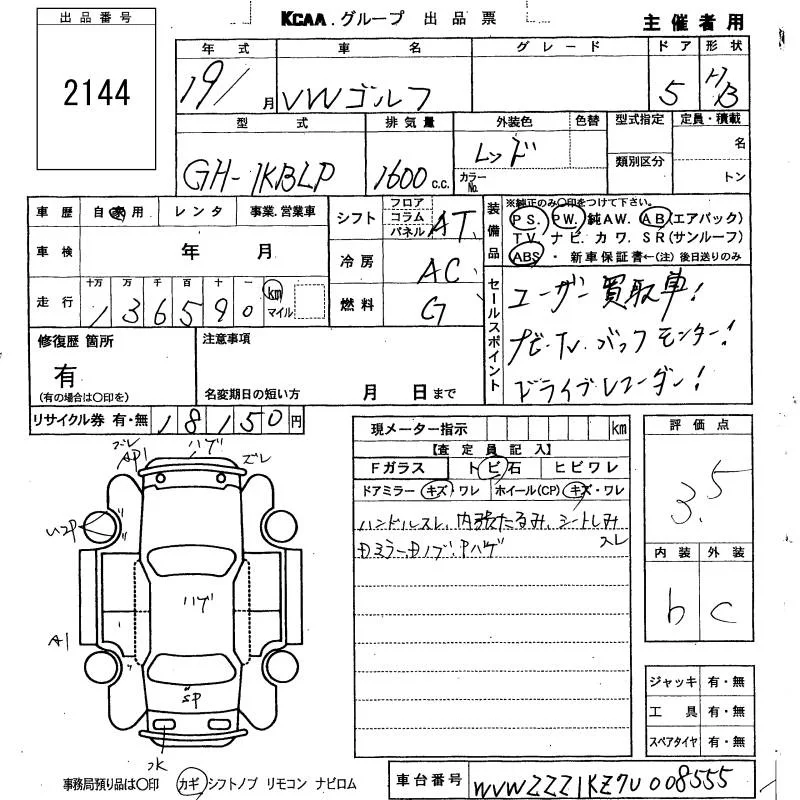 出品番号
2144
KCAA.グループ 出品票
主催者用
年式 車名 グレード ドア 形状
19/ 月 VWゴルフ 5 HB
型式 排気量 外装色 色替 型式指定 定員・積載
GH-1KBLP 1600 c.c. レッド カラーNo. 類別区分 名 トン
車歴 自家用 レンタ 事業.営業車
車検 年 月
走行 十万 万 千 百 十 一
136590 km マイル
シフト フロア コラム パネル AT
冷房 AC
燃料 G
装備品
※純正のみ〇印をつけて下さい。
P S. P W. 純AW. A B(エアバック)
T V ナ ビ. カ ワ. S R(サンルーフ)
ABS ・ 新車保証書←(注) 後日送りのみ
セールスポイント
ユーザー買取車!
ナビ・TV.バックモニター!
ドライブレコーダー!
修復歴 箇所
有
(有の場合は〇印を)
注意事項
名変期日の短い方 月 日まで
リサイクル券 有・無 18150円
現メーター指示 km
【査定員記入】
Fガラス トビ石 ヒビワレ
ドアミラー キズ・ワレ ホイール(CP) キズ・ワレ
ハンドルスレ、内張たるみ、シートしみ
スレ
Dミラー、Dノブ、Pハゲ
評価点
3.5
内装 外装
b c
ズレ ハゲ
AP1 ズレ
ハゲ
A1
SP
ジャッキ 有・無
工具 有・無
スペアタイヤ 有・無
事務局預り品は〇印 カギ シフトノブ リモコン ナビロム
車台番号 WVWZZZ1KZ7U008555